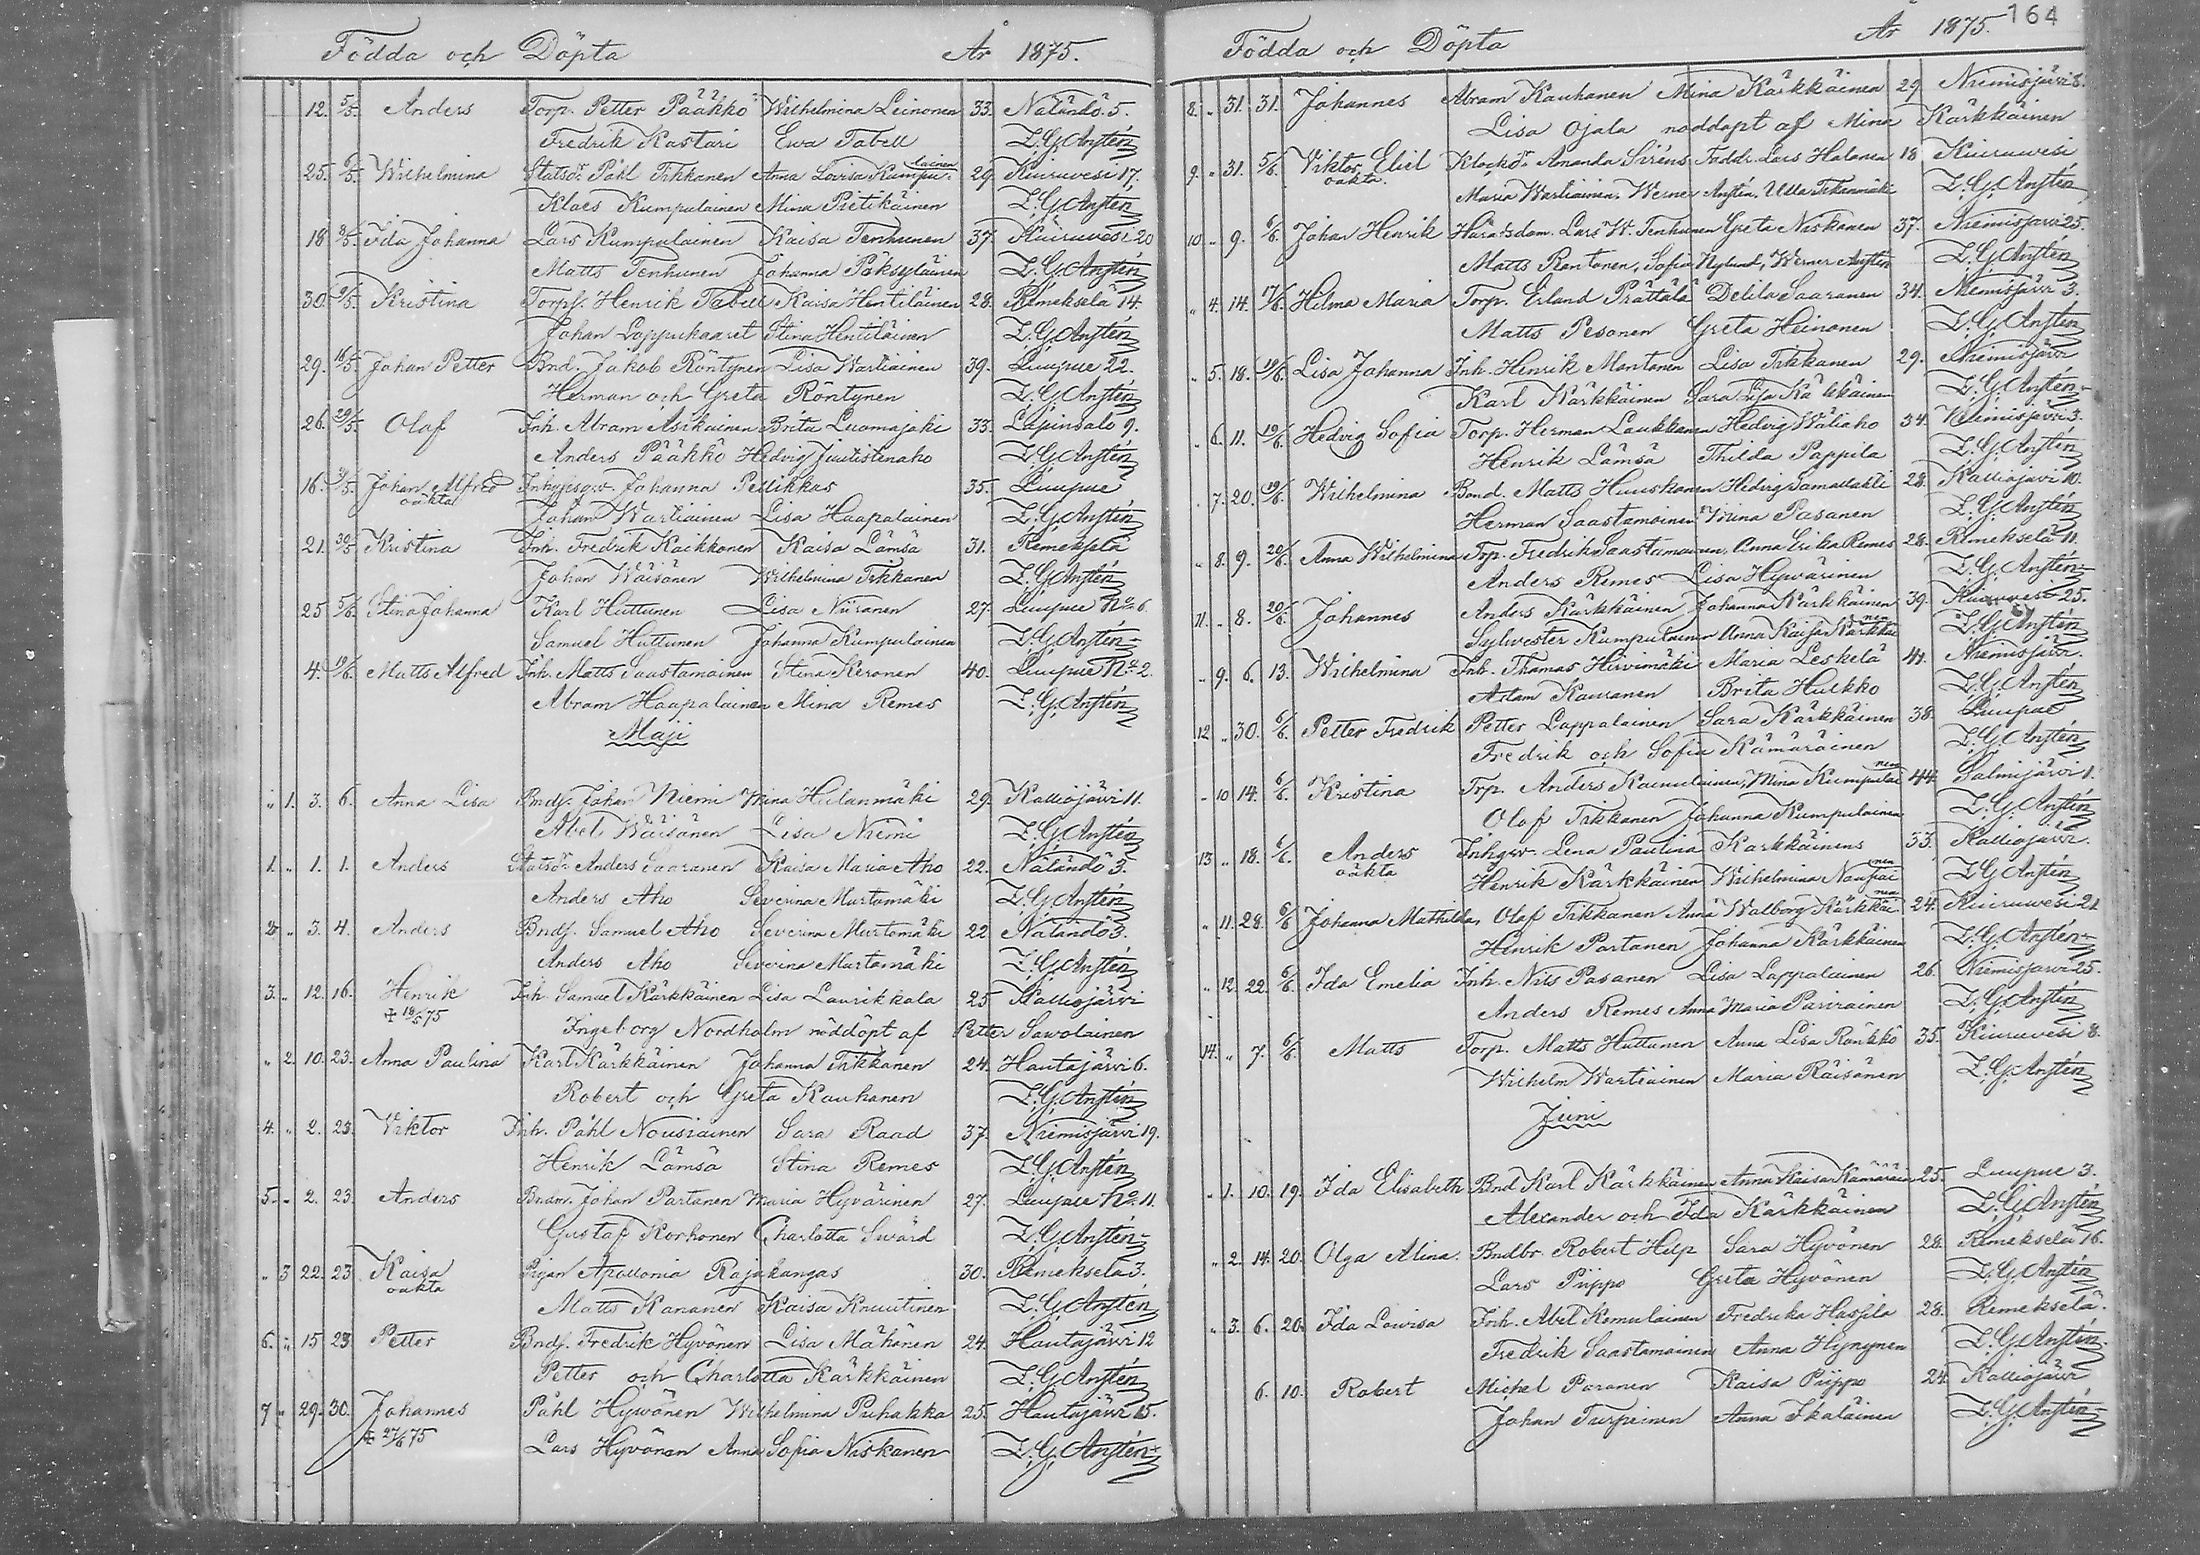 Födda och Döpta År 1875.
12. 5/5. Anders Torp. Petter Pääkkö Wilhelmina Leinonen 33. Näländö. 5.
Fredrik Kastari Ewa Tabell Z. G. Anstén
25. 6/5. Wilhelmina Statsdr. Påhl Tikkanen Anna Lovisa Kumpulainen 29 Kiuruvesi 17.
Klaes Kumpulainen Mina Pietikäinen Z. G. Anstén
18 8/5. Ida Johanna Lars Kumpulainen Kaisa Tenhunen 37. Kiuruvesi 20
Matts Tenhunen Johanna Pöksyläinen Z. G. Anstén
30. 9/5. Kristina Torpf. Henrik Tabell Kaisa Hentiläinen 28. Remekselä 14.
Johan Loppukaaret Stina Hentiläinen Z. G. Anstén
29. 16/5. Johan Petter Bnd. Jakob Röntynen Lisa Wartiainen 39. Luupue 22.
Herman och Greta Röntynen Z. G. Anstén
26. 29/5. Olof Inh. Abram Asikainen Brita Luomajoki 33. Lapinsalo 9.
Anders Pääkkö Hedvig Juutistenaho Z. G. Anstén
16. Johan Alfred Inhypsqv. Johanna Pellikkas 35. Luupue
oäkta
Johan Wartiainen Lisa Haapalainen Z. G. Anstén
21. 30/5 Kristina Inh. Fredrik Kaikkonen Kaisa Lämsä 31. Remekselä
Johan Wäisänen Wilhelmina Tikkanen Z. G. Anstén
25 5/6. Stina Johanna Karl Huttunen Lisa Niiranen 27. Luupue No 6.
Samuel Huttunen Johanna Kumpulainen Z. G. Anstén
4. 19/6. Matts Alfred Inh. Matts Saastamoinen Stina Keronen 40. Luupue No 2.
Abram Haapalainen Mina Remes Z. G. Anstén
Maji
" 1. 3. 6. Anna Lisa Bndf. Johan Niemi Mina Heilanmäki 29. Kalliojärvi 11.
Abel Wäisänen Lisa Niemi Z. G. Anstén
1. " 1. 1. Anders Statsdr. Anders Saaranen Kaisa Maria Aho 22. Näländö 3.
Anders Aho Severina Murtomäki Z. G. Anstén
2. " 3. 4. Anders Bndf. Samuel Aho Severina Murtomäki 22 Näländö 3.
Anders Aho Severina Murtomäki Z. G. Anstén
3. " 12. 16. Henrik Inh. Samuel Kärkkäinen Lisa Laurikkala 25 Kalliojärvi
+ 18/5 75
Ingeborg Nordholm nöddöpt af Petter Sawolainen
" 2. 10. 23. Anna Paulina Karl Kärkkäinen Johanna Tikkanen 24. Hautajärvi 6.
Robert och Greta Kauhanen Z. G. Anstén
4. " 2. 23. Viktor Inh. Påhl Nousiainen Sara Raad 37. Niemisjärvi 19.
Henrik Lämsä Stina Remes Z. G. Anstén
5. " 2. 23. Anders Bndm. Johan Partanen Maria Hyvärinen 27. Luupue No 11.
Gustaf Korhonen Charlotta Swärd Z. G. Anstén
" 3 22. 23 Kaisa Pigan Apollonia Rajakangas 30. Remekselä 3.
oäkta
Matts Kananen Kaisa Knuutinen Z. G. Anstén
6. " 15 23 Petter Bndf. Fredrik Hyvönen Lisa Mähönen 24. Hautajärvi 12
Petter och Charlotta Kärkkäinen Z. G. Anstén
7 " 29. 30. Johannes Påhl Hyvönen Wilhelmina Puhakka 25. Hautajärvi 15.
+ 27/6 75
Lars Hyvönen Anna Sofia Niskanen Z. G. Anstén
164
Födda och Döpta År 1875.
8. " 31. 31. Johannes Abram Kauhanen Mina Kärkkäinen 29 Niemisjärvi 8.
Lisa Ojala nöddöpt af Mina Kärkkäinen
9. " 31. 5/6. Viktor Eliel Klockdr. Ananda Siréns Faddr. Lars Halonen 18 Kiuruwesi
oäkta.
Maria Wartiainen, Werner Anstén, Ulla Tikkanmäki Z. G. Anstén
10 " 9. 6/6. Johan Henrik Häradsdom. Lars W. Tenhunen Greta Niskanen 37. Niemisjärvi 25.
Matts Rantonen, Sofia Nylund, Werner Anstén Z. G. Anstén
" 4. 14. 17/6. Hilma Maria Torp. Erland Prättälä Delila Saaranen 34. Niemisjärvi 3.
Matts Pesonen Greta Heinonen Z. G. Anstén
" 5. 18. 19/6. Lisa Johanna Inh. Henrik Mantonen Lisa Tikkanen 29. Niemisjärvi
Karl Kärkkäinen Sara Lisa Kärkkäinen Z. G. Anstén
" 6. 11. 19/6. Hedvig Sofia Torp. Herman Laukkanen Hedvig Wäliaho 34. Niemisjärvi 3.
Henrik Lämsä Thilda Pappila Z. G. Anstén
" 7. 20. 19/6. Wilhelmina Bond. Matts Huuskonen Hedvig 28. Kalliojärvi 10.
Herman Saastamoinen Mina Pasanen Z. G. Anstén
" 8. 9. 20/6. Anna Wilhelmina Trp. Fredrik Saastamoinen, Anna Erika Remes 28. Remekselä 11.
Anders Remes Lisa Hyvärinen Z. G. Anstén
11. " 8. 20/6. Johannes Anders Kärkkäinen Johanna Kärkkäinen 39. Kiuruvesi 25.
Sylvester Kumpulainen Anna Kaisa Kärkkäinen Z. G. Anstén
" 9. 6. 13. Wilhelmina Inh. Thomas Hirvimäki Maria Leskelä 41. Niemisjärvi.
Adam Kauranen Brita Hukko Z. G. Anstén
12 " 30. 6/6. Petter Fredrik Petter Lappalainen Sara Kärkkäinen 38. Luupue
Fredrik och Sofia Kämäräinen Z. G. Anstén
" 10 14. 6/6. Kristina Trp. Anders Kainulainen, Mina Kumpulainen 44. Salmijärvi 1.
Olof Tikkanen Johanna Kumpulainen Z. G. Anstén
13. " 18. 6/6. Anders Inhqv. Lena Paulina Kärkkäinens 33. Kalliojärvi.
oäkta
Henrik Kärkkäinen Wilhelmina Z. G. Anstén
" 11. 28. 6/6 Johanna Mathilda Olof Tikkanen Anna Walborg Kärkkäinen 24. Kiuruwesi 21
Henrik Partanen Johanna Kärkkäinen Z. G. Anstén
" 12. 22. 6/6. Ida Emelia Inh. Nils Pasanen Lisa Lappalainen 26. Niemisjärvi 25.
Anders Remes Anna Maria Parviainen Z. G. Anstén
14. " 7. 6/6. Matts Torp. Matts Huttunen Anna Lisa Ränkkö 35. Kiuruvesi 8.
Wilhelm Wartiainen Maria Räisänen Z. G. Anstén
Juni
" 1. 10. 19. Ida Elisabeth Bnd Karl Kärkkäinen Anna Kaisa Kämäräin 25. Luupue 3.
Alexander och Ida Kärkkäinen Z. G. Anstén
" 2. 14. 20. Olga Alina Bndbr. Robert Help Sara Hyvönen 28. Remekselä 16.
Lars Piippo Greta Hyvönen Z. G. Anstén
" 3. 6. 20. Ida Lovisa Inh. Abel Komulainen Fredrika Hassila 28. Remekselä.
Fredrik Saastamoinen Anna Hynynen Z. G. Anstén
6. 10. Robert Michel Paranen Kaisa Piippo 24 Kalliojärvi
Johan Turpeinen Anna Ikäläinen Z. G. Anstén